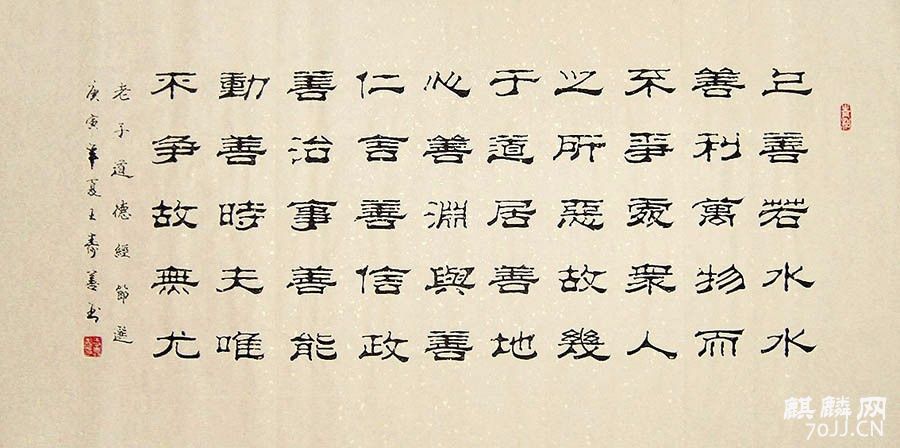 上善若水水
善利萬物而
不爭處衆人
之所惡故幾
于道居善地
心善淵與善
仁言善信政
善治事善能
動善時夫唯
不争故無尤
老子道德經節選
庚寅年夏王壽善书
麒麟网
70JJ.CN